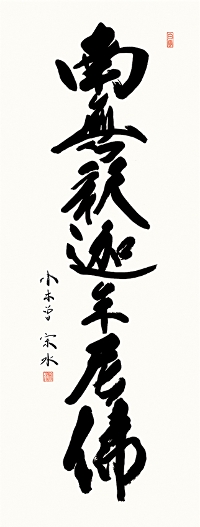 南無釈迦牟尼佛
小木曽宗水